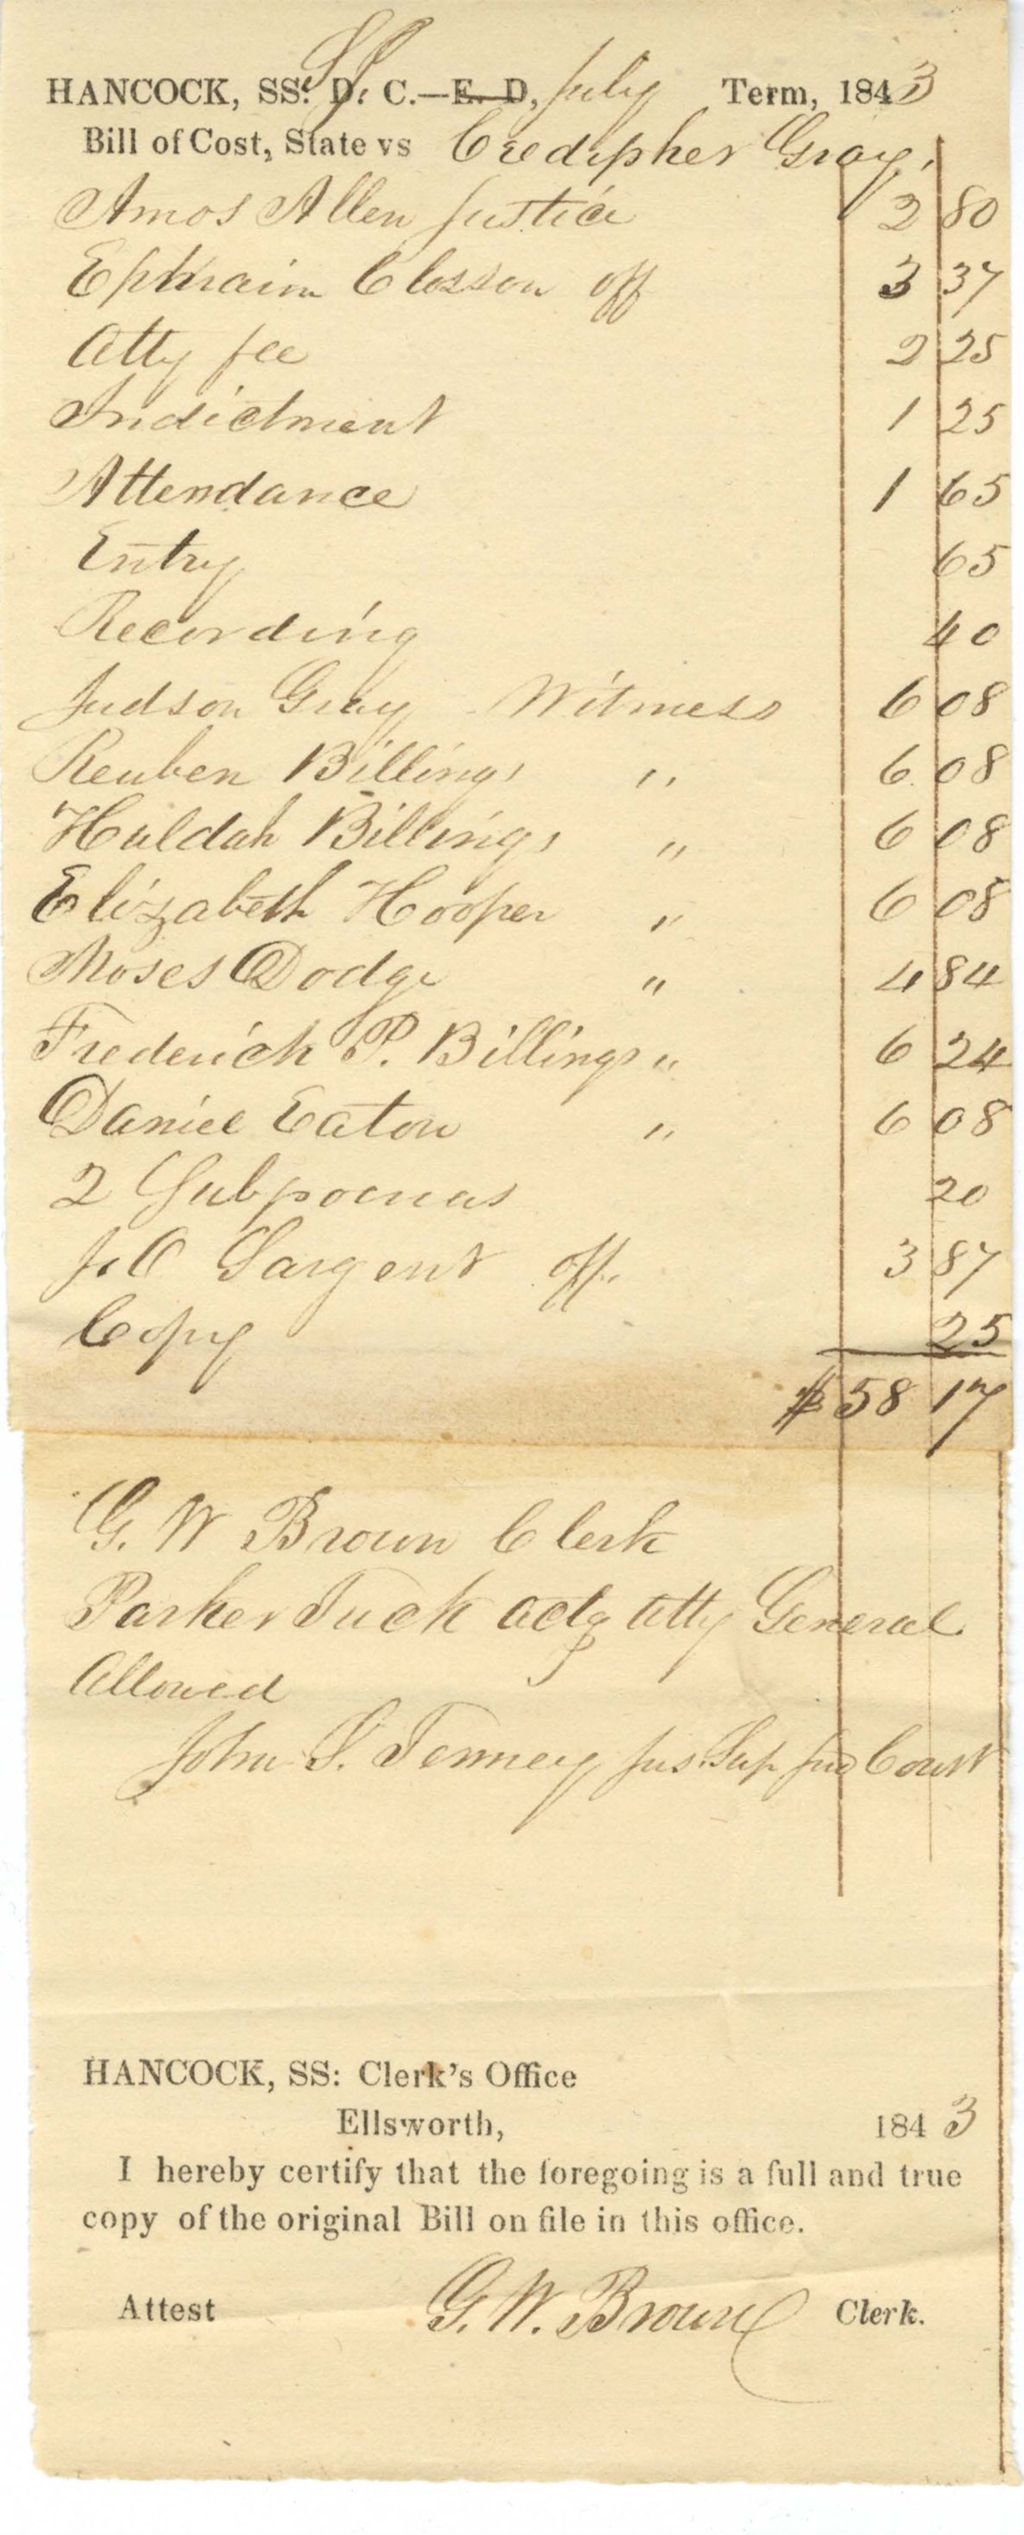 HANCOCK, SS. S. J. C.—E. D, July Term, 1843
Bill of Cost, State vs Credipher Gray,
Amos Allen Justice 2 80
Ephraim Closson off 3 37
Atty fee 2 25
Indictment 1 25
Attendance 1 65
Entry 65
Recording 40
Judson Gray Witness 6 08
Reuben Billings " 6 08
Huldah Billings " 6 08
Elizabeth Hooper " 6 08
Moses Dodge " 4 84
Frederick P. Billings " 6 24
Daniel Eaton " 6 08
2 Subpoenas 20
J. C Sargent off. 3 87
Copy 25
$ 58 17
G. W Brown Clerk
Parker Tuck actg atty General
Allowed
John S. Tenney Jus. Sup Jud Court
HANCOCK, SS: Clerk's Office
Ellsworth, 1843
I hereby certify that the foregoing is a full and true
copy of the original Bill on file in this office.
Attest G. W. Brown Clerk.